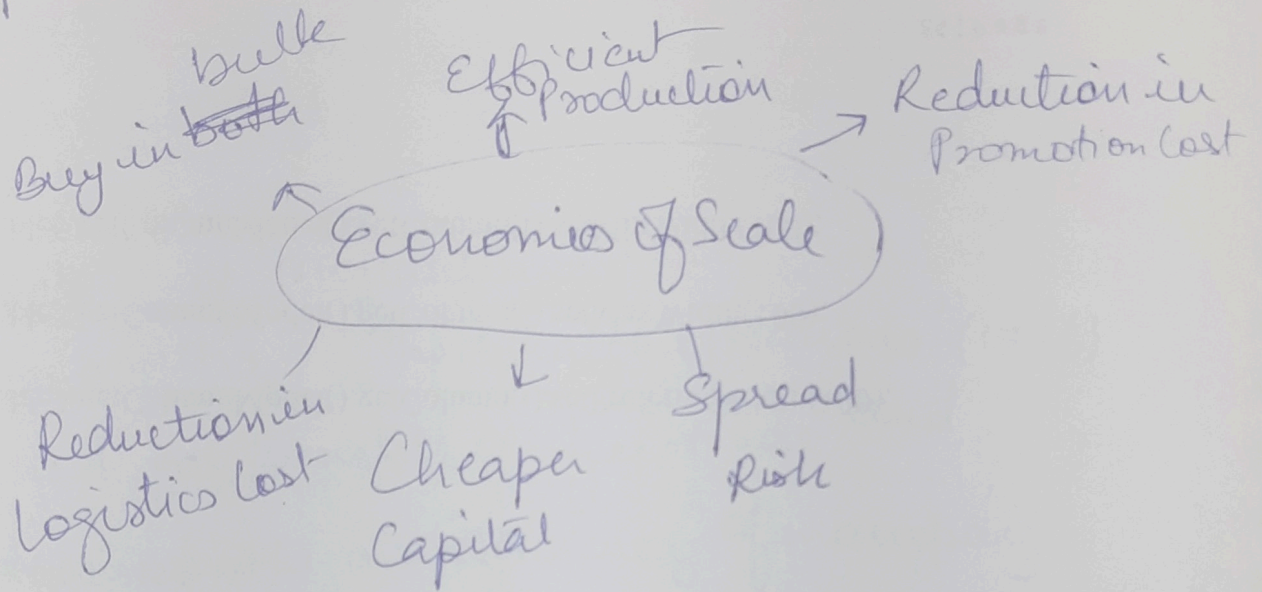 bulk
Buy in both
Efficient
Production
Reduction in
Promotion Cost
Economies of Scale
Reduction in
Logistics Cost
Cheaper
Capital
Spread
Risk